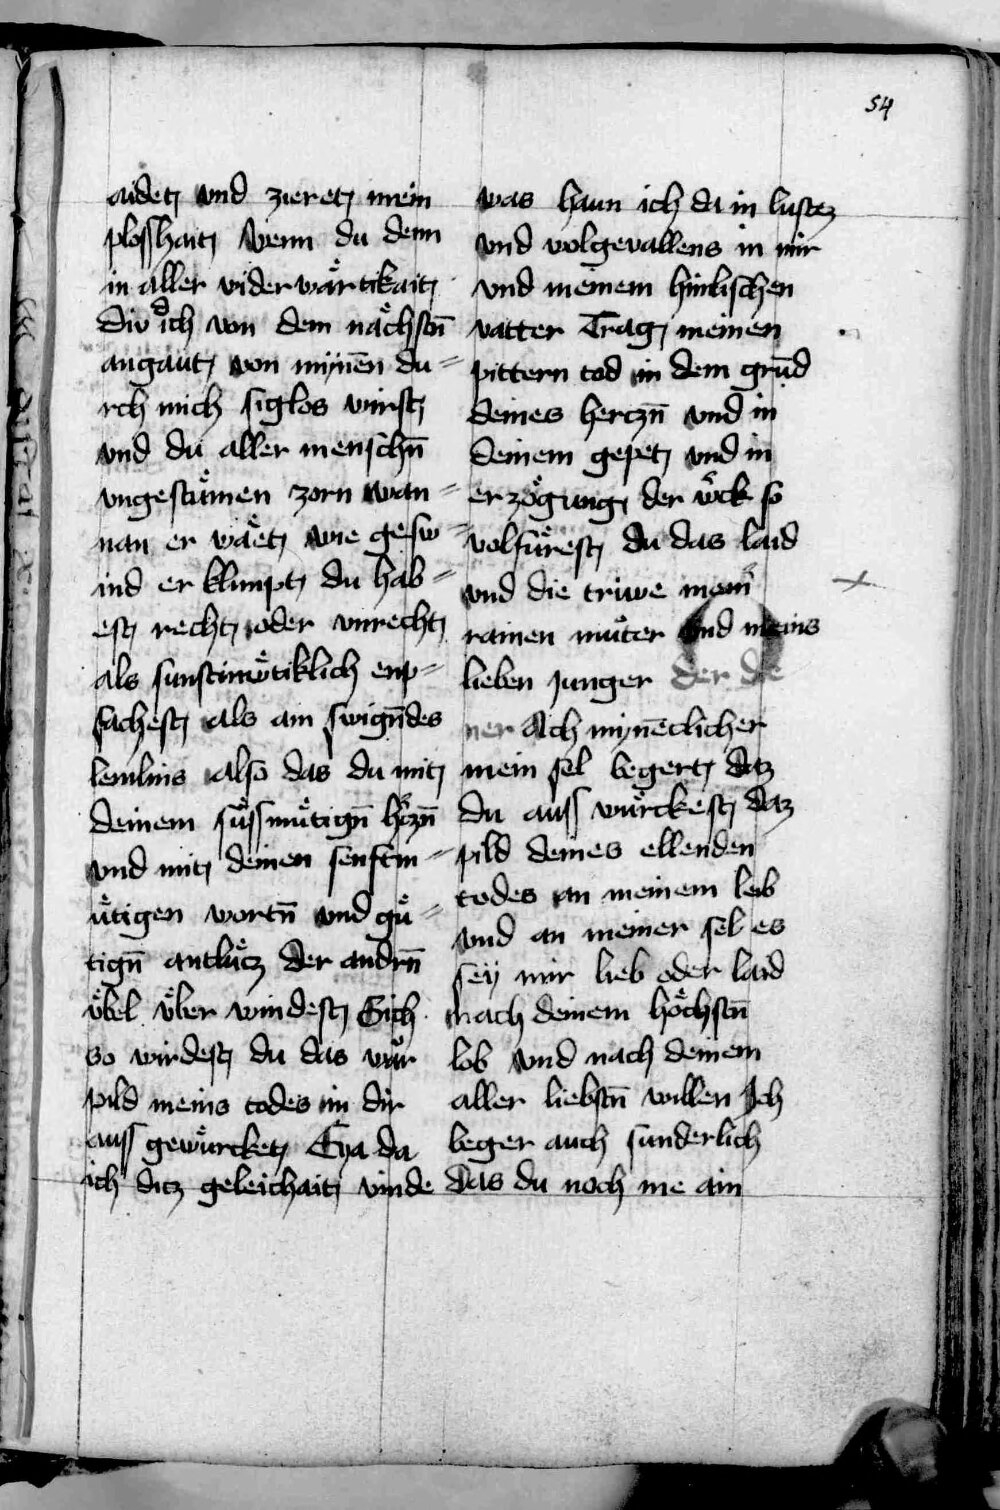 54
aidet und zieret mein
plosshait wenn du denn
in aller viderwaͤrtikait
div dich von dem naͤchstn̄
angaut von mynēn du=
rch mich siglos wirst
und du aller menschn̄
ungestuͤmen zorn wan=
nan er waͤet wie gesw=
ind er klimpt du hab=
est recht oder unrecht
als sunftmuͤtiklich enp=
fachest als ain swign̄des
lemlins also das du mit
deinem suͤssmuͤtign̄ hꝛ̄zn̄
und mit deinen senftm=
uͤtigen wortn̄ und guͤ=
tign̄ antluͤcz der andrn̄
uͤbel uͤber windest Sich
so wirdest du das war
pild meins todes in dir
auss gewuͤrcket Eya da
ich ditz geleichait vinde
was haun ich da in lustez
und volgevallens in mir
und meinem himlischen
vatter Trag meinen
pittern tod in dem grūd
deines herczn̄ und in
deinem gepet und in
erzoͤgung der wͤck so
volfuͤrest du das laid
und die triwe mein
rainen muͤter und meins
lieben junger der die
ner Ach mynēclicher
mein sel begert daz
du auss wuͤrckest daz
pild deines ellenden
todes an meinem leib
und an meiner sel es
sey mir lieb oder laid
nach deinem hoͤchstn̄
lob und nach deinem
aller liebstn̄ willen Ich
beger auch sunderlich
das du noch me ain